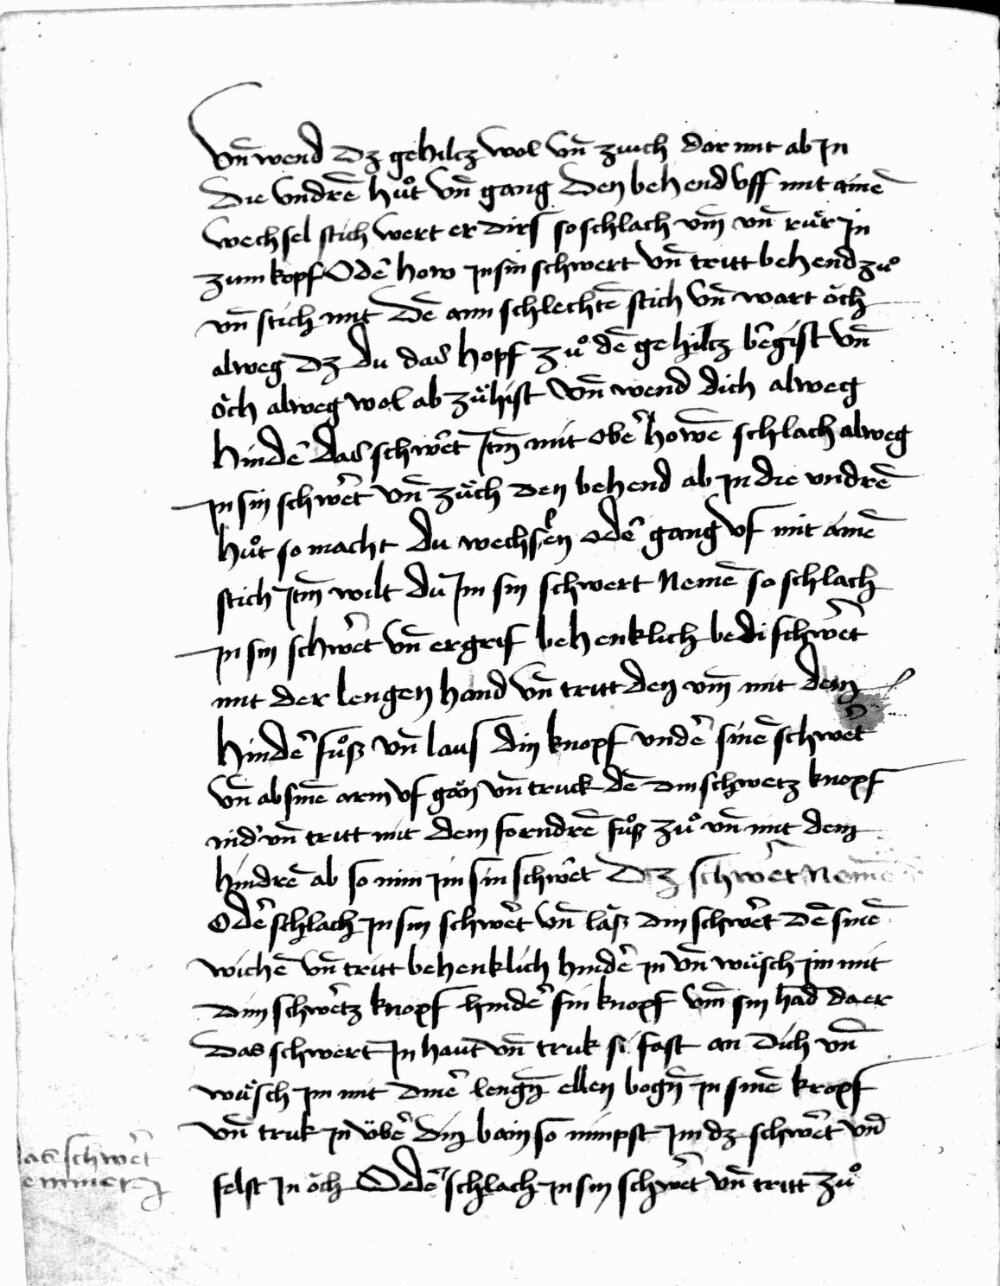 Vn̄ wend dz gehiltz wol vn̄ zuich dar mit ab In
die vndrē hůt vn̄ gang den behend vff mit ainē
wechsel stich wert er dirs so schlach vm̄ vn̄ rür In
zum kopf Odē how In sin schwert vn̄ tritt behend zů
vn̄ stich mit dē ain schlechtē stich vn̄ wart öch
alweg dz du das hopf zů dē gehiltz bēgist vn̄
öch alweg wol ab zühist vn̄ wend dich alweg
hindē das schwēt Itm̄ mit obē howē schlach alweg
In sin schwēt vn̄ züch den behend ab In die vndrē
hůt so macht du wechslen odē gang vf mit ainē
stich Itm̄ wilt du Im sin schwert Nemē so schlach
In sin schwēt vn̄ ergrif behenklich bedi schwēt
mit der lengen hand vn̄ tritt den vm̄ mit dem
hindē fůß vn̄ laus din knopf vndē sinē schwēt
vn̄ ab sinē arm vf gän vn̄ truck dē din schwetz knopf
nid vn̄ tritt mit dem forndrē fůß zů vn̄ mit dem
hindrē ab so nim Im sin schwēt Dz schwēt Nemē
Odē schlach In sin schwēt vn̄ läß din schwēt dē sinē
wichē vn̄ tritt behenklich hindē In vn̄ wüsch Im mit
dim schwētz knopf hindē sin knopf vm̄ sin hād da er
das schwert In haut vn̄ truk si fast an dich vn̄
wäsch Im mit dinē lengn̄ ellen bogn̄ In sinē kropf
vn̄ truk In übē din bain so nimpst Im dz schwēt vnd
felst In öch Odē schlach In sin schwēt vn̄ tritt zů
das schwēt